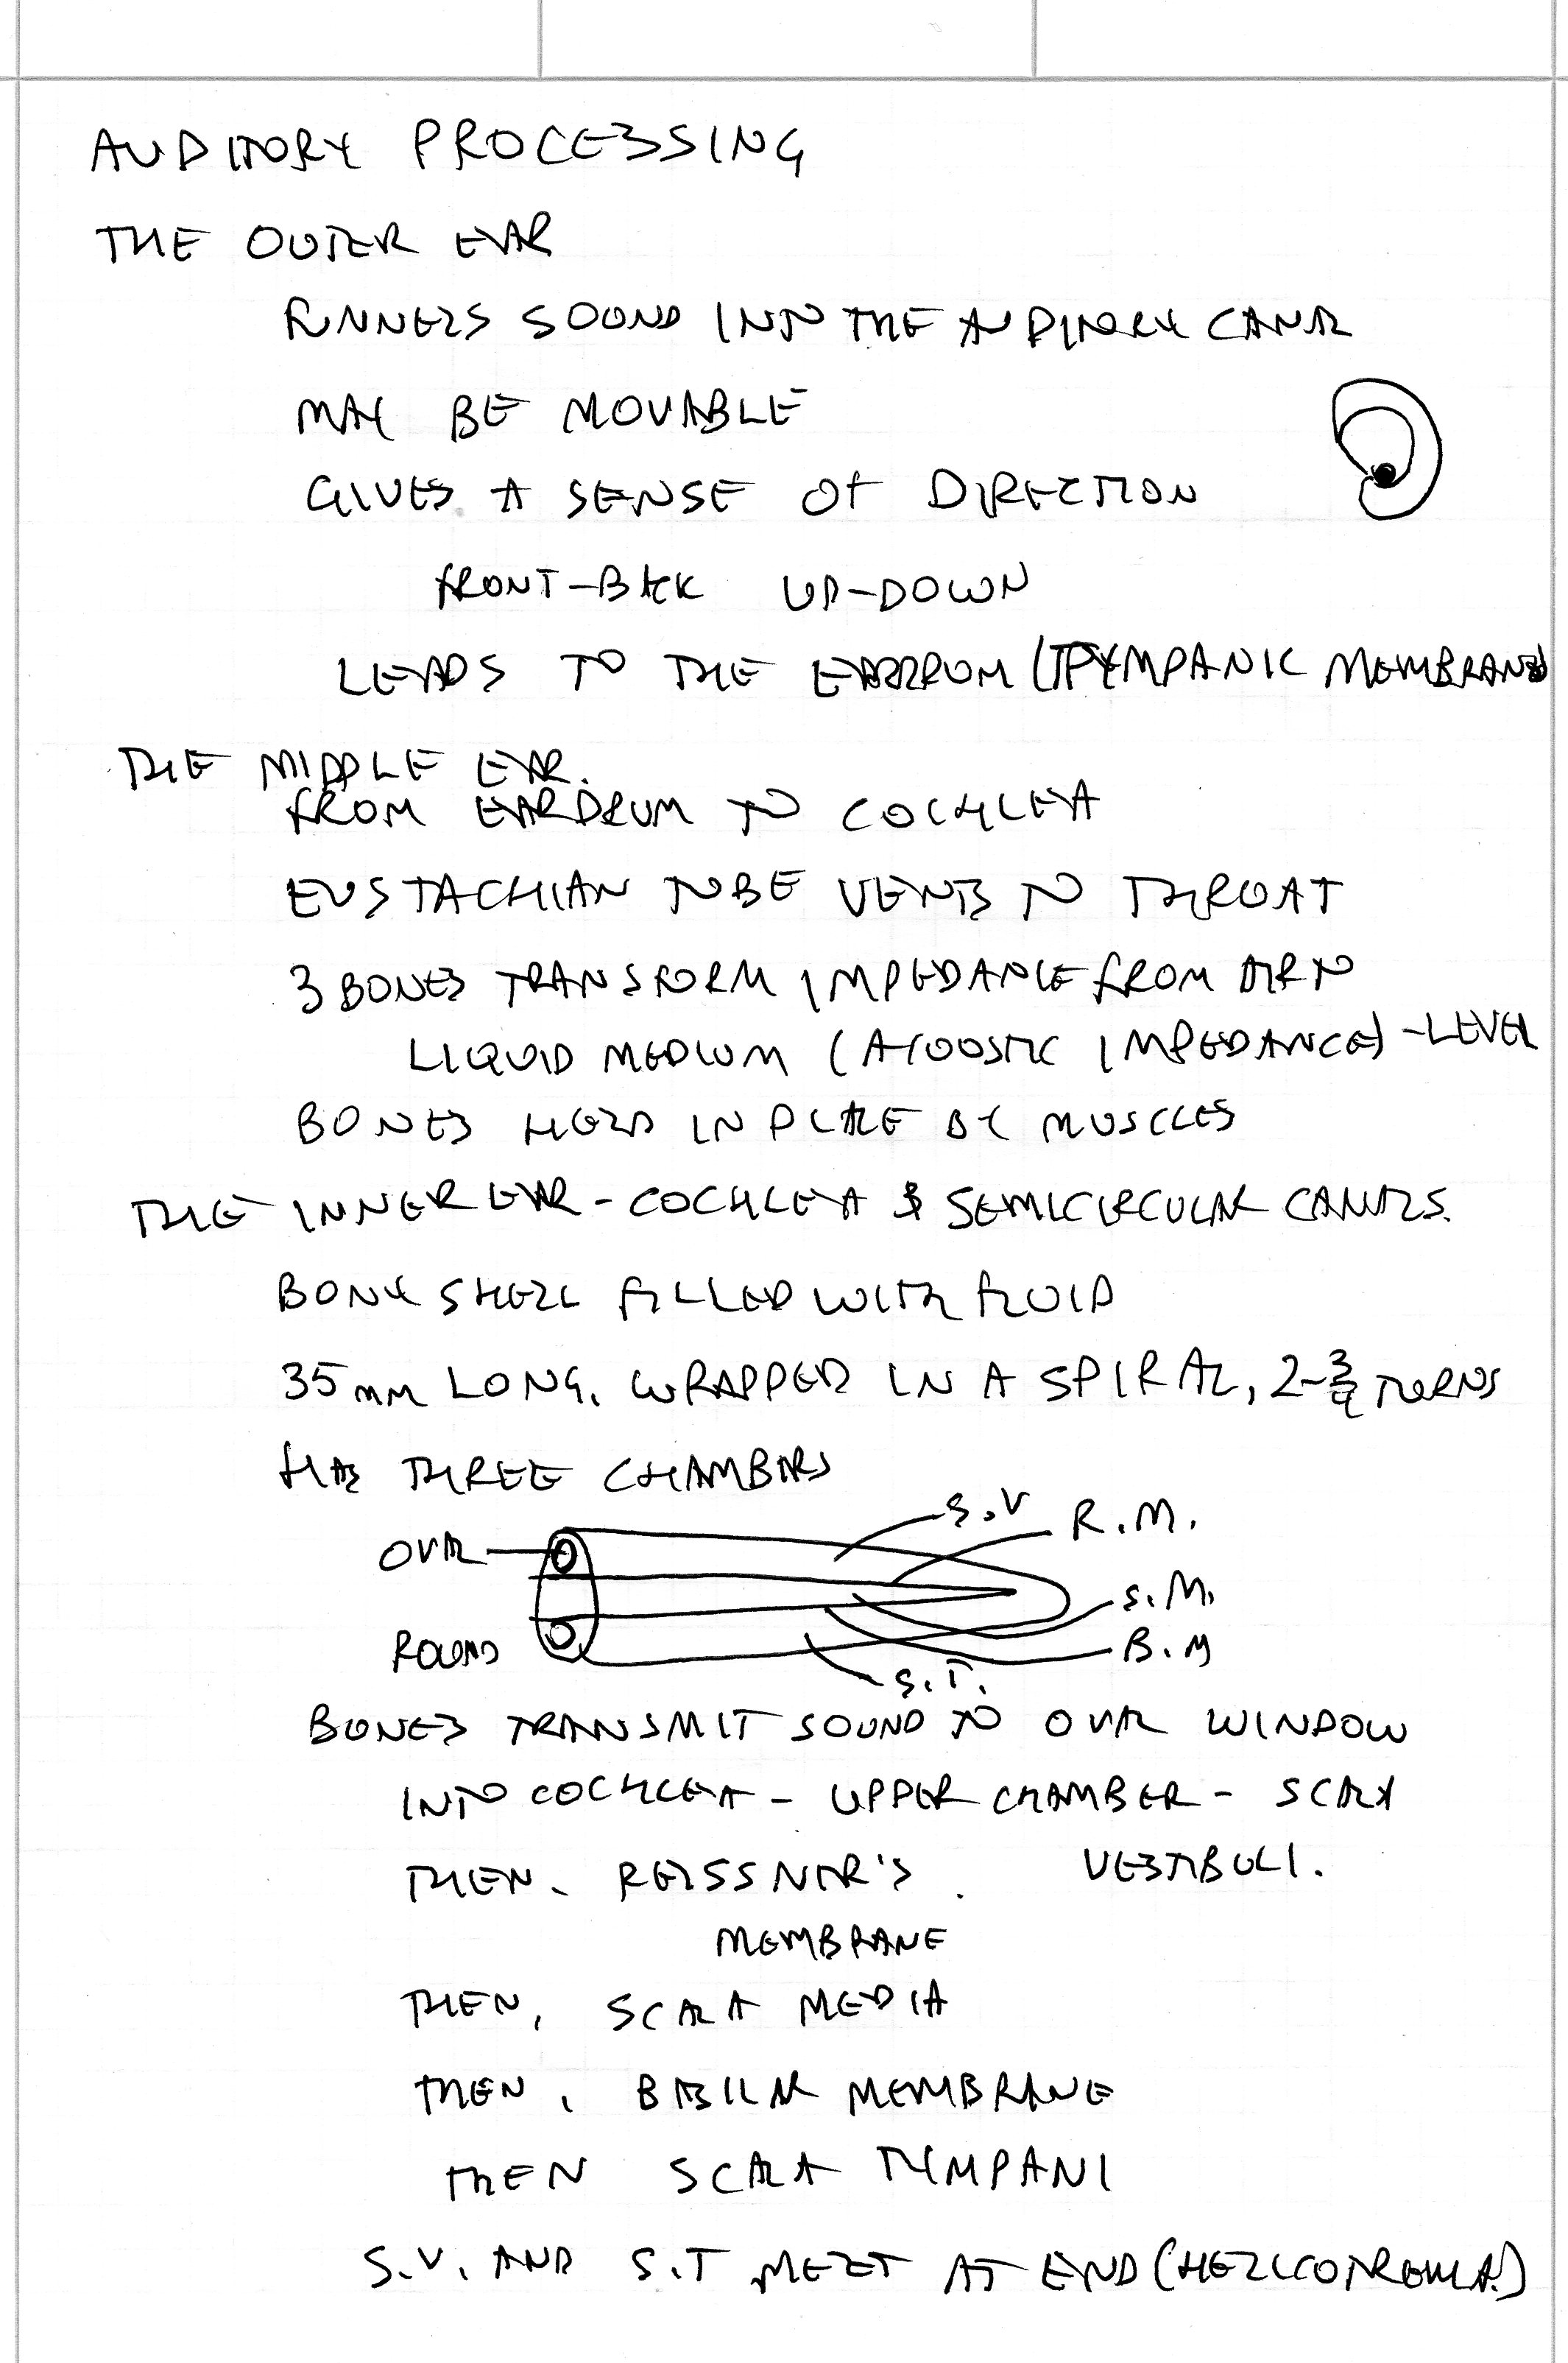 AUDITORY PROCESSING
THE OUTER EAR
FUNNELS SOUND INTO THE AUDITORY CANAL
MAY BE MOVABLE
GIVES A SENSE OF DIRECTION
FRONT-BACK UP-DOWN
LEADS TO THE EARDRUM (TYMPANIC MEMBRANE)
THE MIDDLE EAR.
FROM EARDRUM TO COCHLEA
EUSTACHIAN TUBE VENTS TO THROAT
3 BONES TRANSFORM IMPEDANCE FROM AIR TO
LIQUID MEDIUM (ACOUSTIC IMPEDANCE) -LEVER
BONES HELD IN PLACE BY MUSCLES
THE INNER EAR - COCHLEA & SEMICIRCULAR CANALS.
BONY SHELL FILLED WITH FLUID
35 mm LONG, WRAPPED IN A SPIRAL, 2-3/4 TURNS
HAS THREE CHAMBERS
S.V
R.M.
OVAL
S.M.
ROUND
B.M
S.T.
BONES TRANSMIT SOUND TO OVAL WINDOW
INTO COCHLEA - UPPER CHAMBER - SCALA
THEN, REISSNER'S VESTIBULI.
MEMBRANE
THEN, SCALA MEDIA
THEN, BASILAR MEMBRANE
THEN SCALA TYMPANI
S.V. AND S.T MEET AT END (HELICOTREMA.)